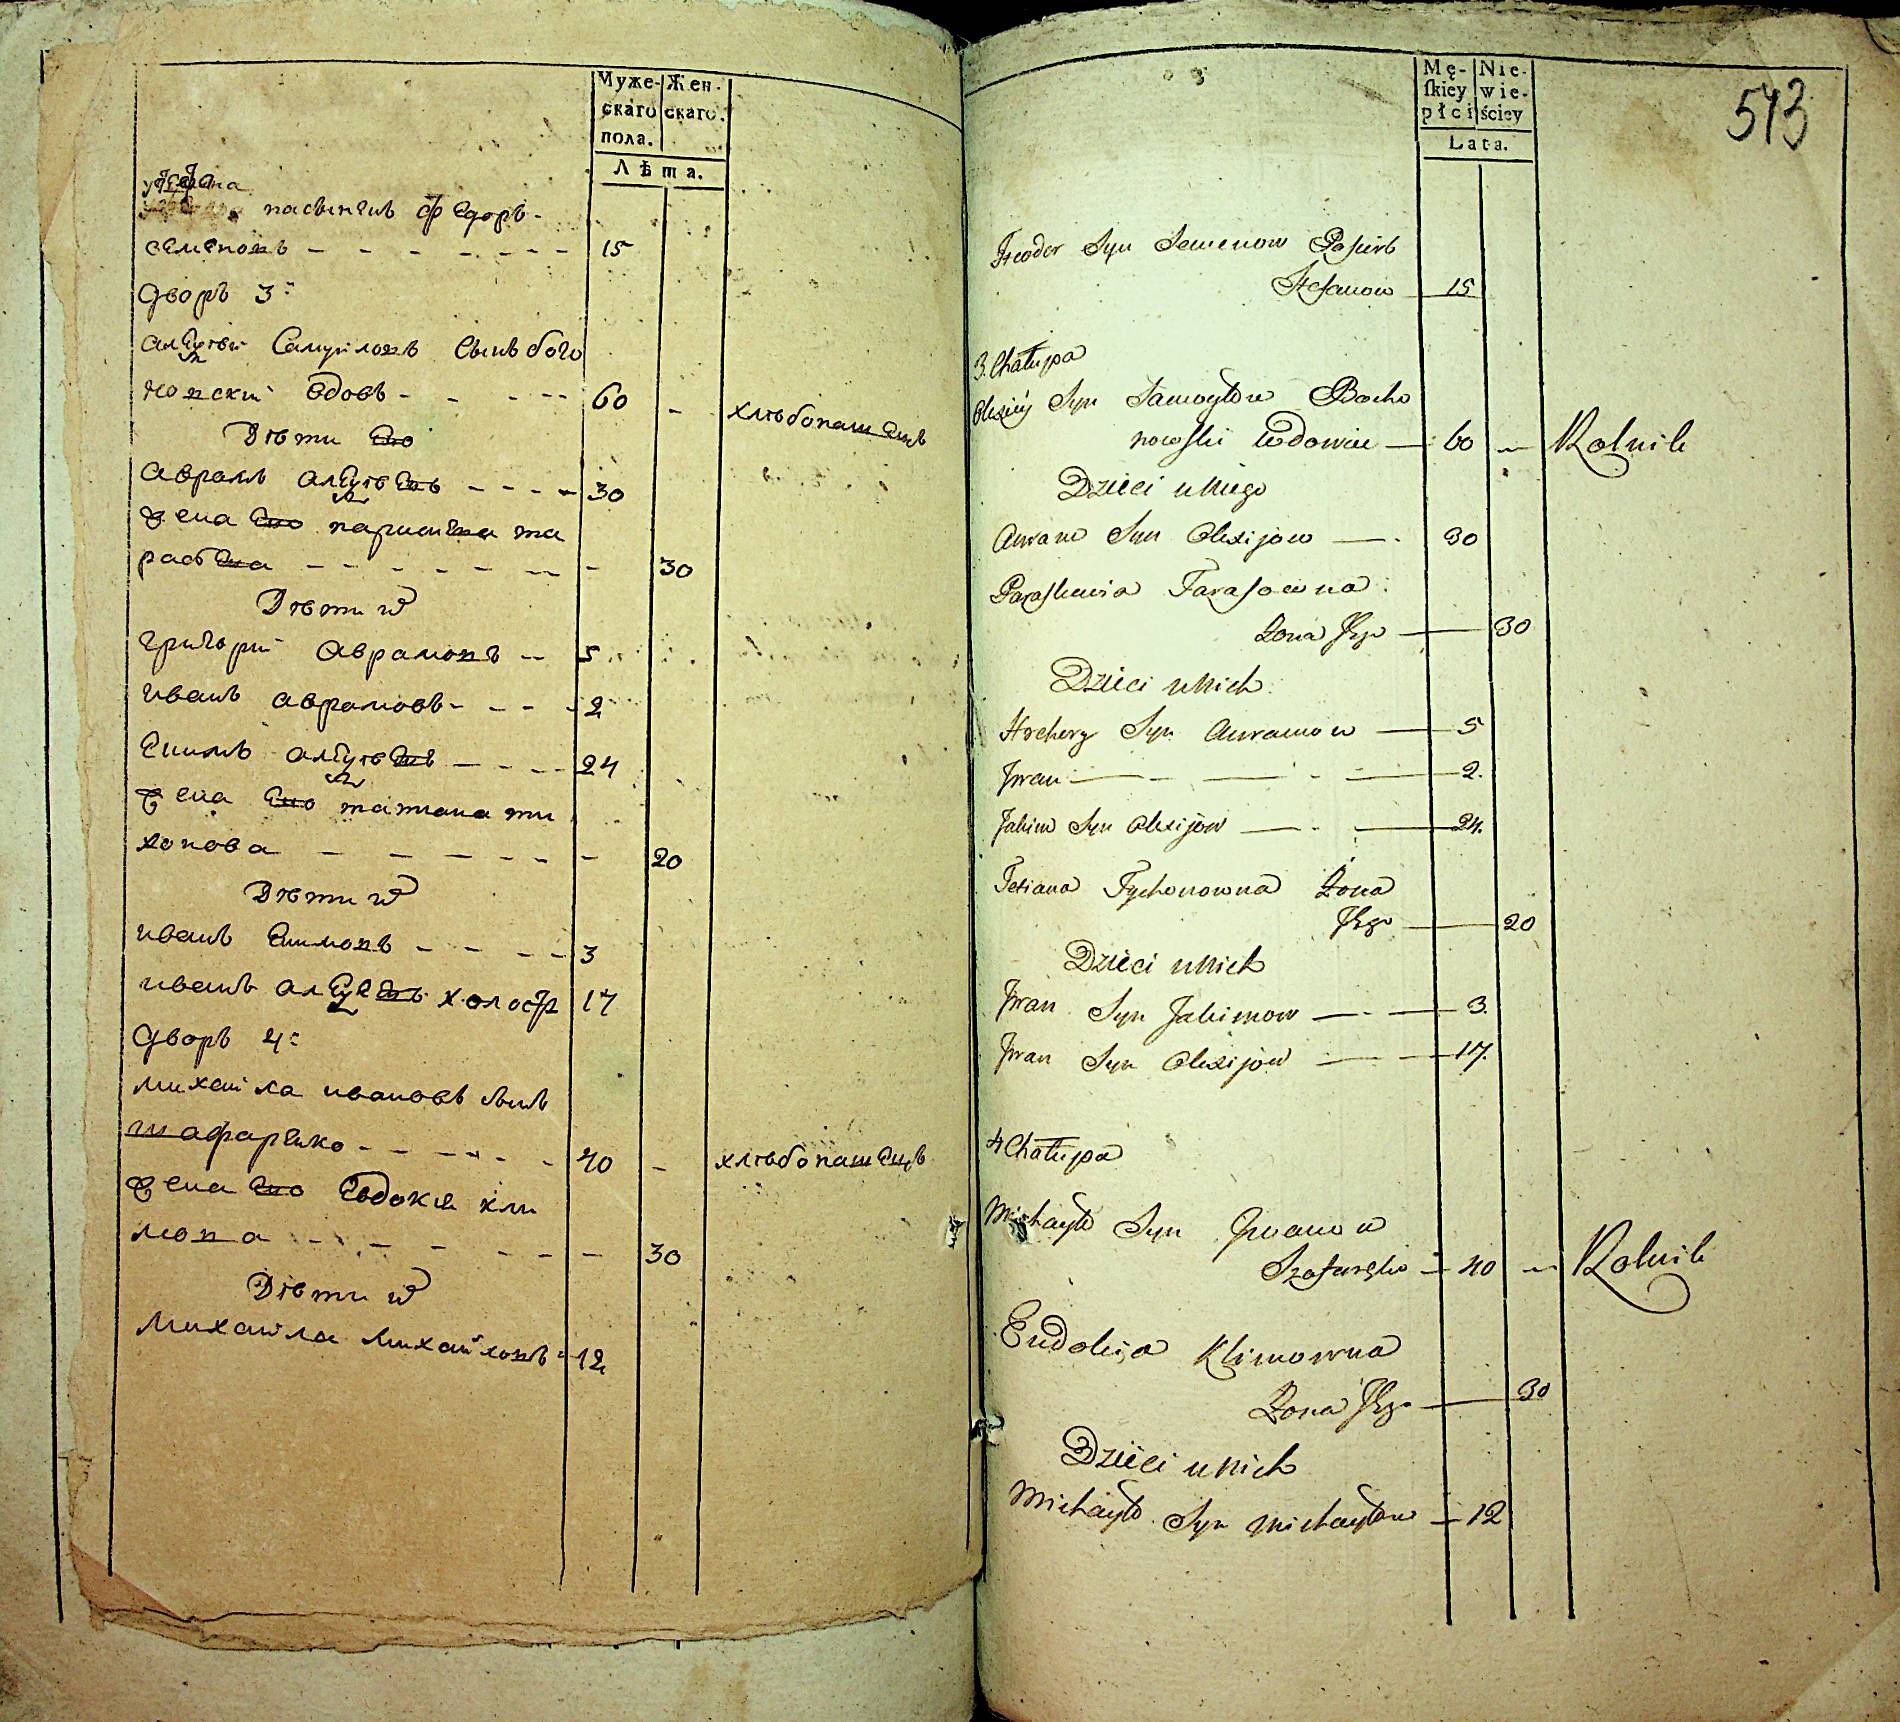 Муже- Жен-
скаго скаго.
пола.
Лѣта.
пасынокъ Федоръ
семеновъ - - - - - - - 15
дворъ 3:
алексѣй Самуиловъ сынъ бого
новский вдовъ - - - - 60 - хлѣбопашецъ
Дѣти его
аврамъ алексѣевъ - - - - 30
жена его параскева та
расова - - - - - - - 30
Дѣти их
григорий аврамовъ - 5
иванъ аврамовъ - - - - 2
екимъ алексѣевъ - - - - 24
жена его татиана ти
хонова - - - - - - - 20
Дѣти их
иванъ екимовъ - - - - 3
иванъ алексѣевъ холостъ 17
дворъ 4:
михайла ивановъ сынъ
шафаренко - - - - - - 40 - хлѣбопашецъ
жена его Евдокия кли
мова - - - - - - - 30
Дѣти их
Михайла Михайловъ - 12
Mę- Nie-
skiey wie-
płci ściey
Lata.
513
Fteodor Syn Semenow Pasierb
Stefanow — 15
3. Chałupa
Olexiey Syn Samoyłow Bocho
nowski wdowiec — 60 — Rolnik
Dzieci u Niego
Awram Syn Olexijow — 30
Paraskewia Tarasowna
Zona Jego — 30
Dzieci u Nich
Hrehory Syn Awramow — 5
Jwan — — — 2.
Jakim Syn Olexijow — — 24.
Tetiana Tychonowna Żona
Jego — 20
Dzieci u Nich
Jwan Syn Jakimow — — 3.
Jwan Syn Olexijow — — 17.
4 Chałupa
Michayło Syn Jwanow
Szafareńko — 40 — Rolnik
Eudokija Klimowna
Zona Jego — 30
Dzieci u Nich
Michayło Syn Michayłow — 12